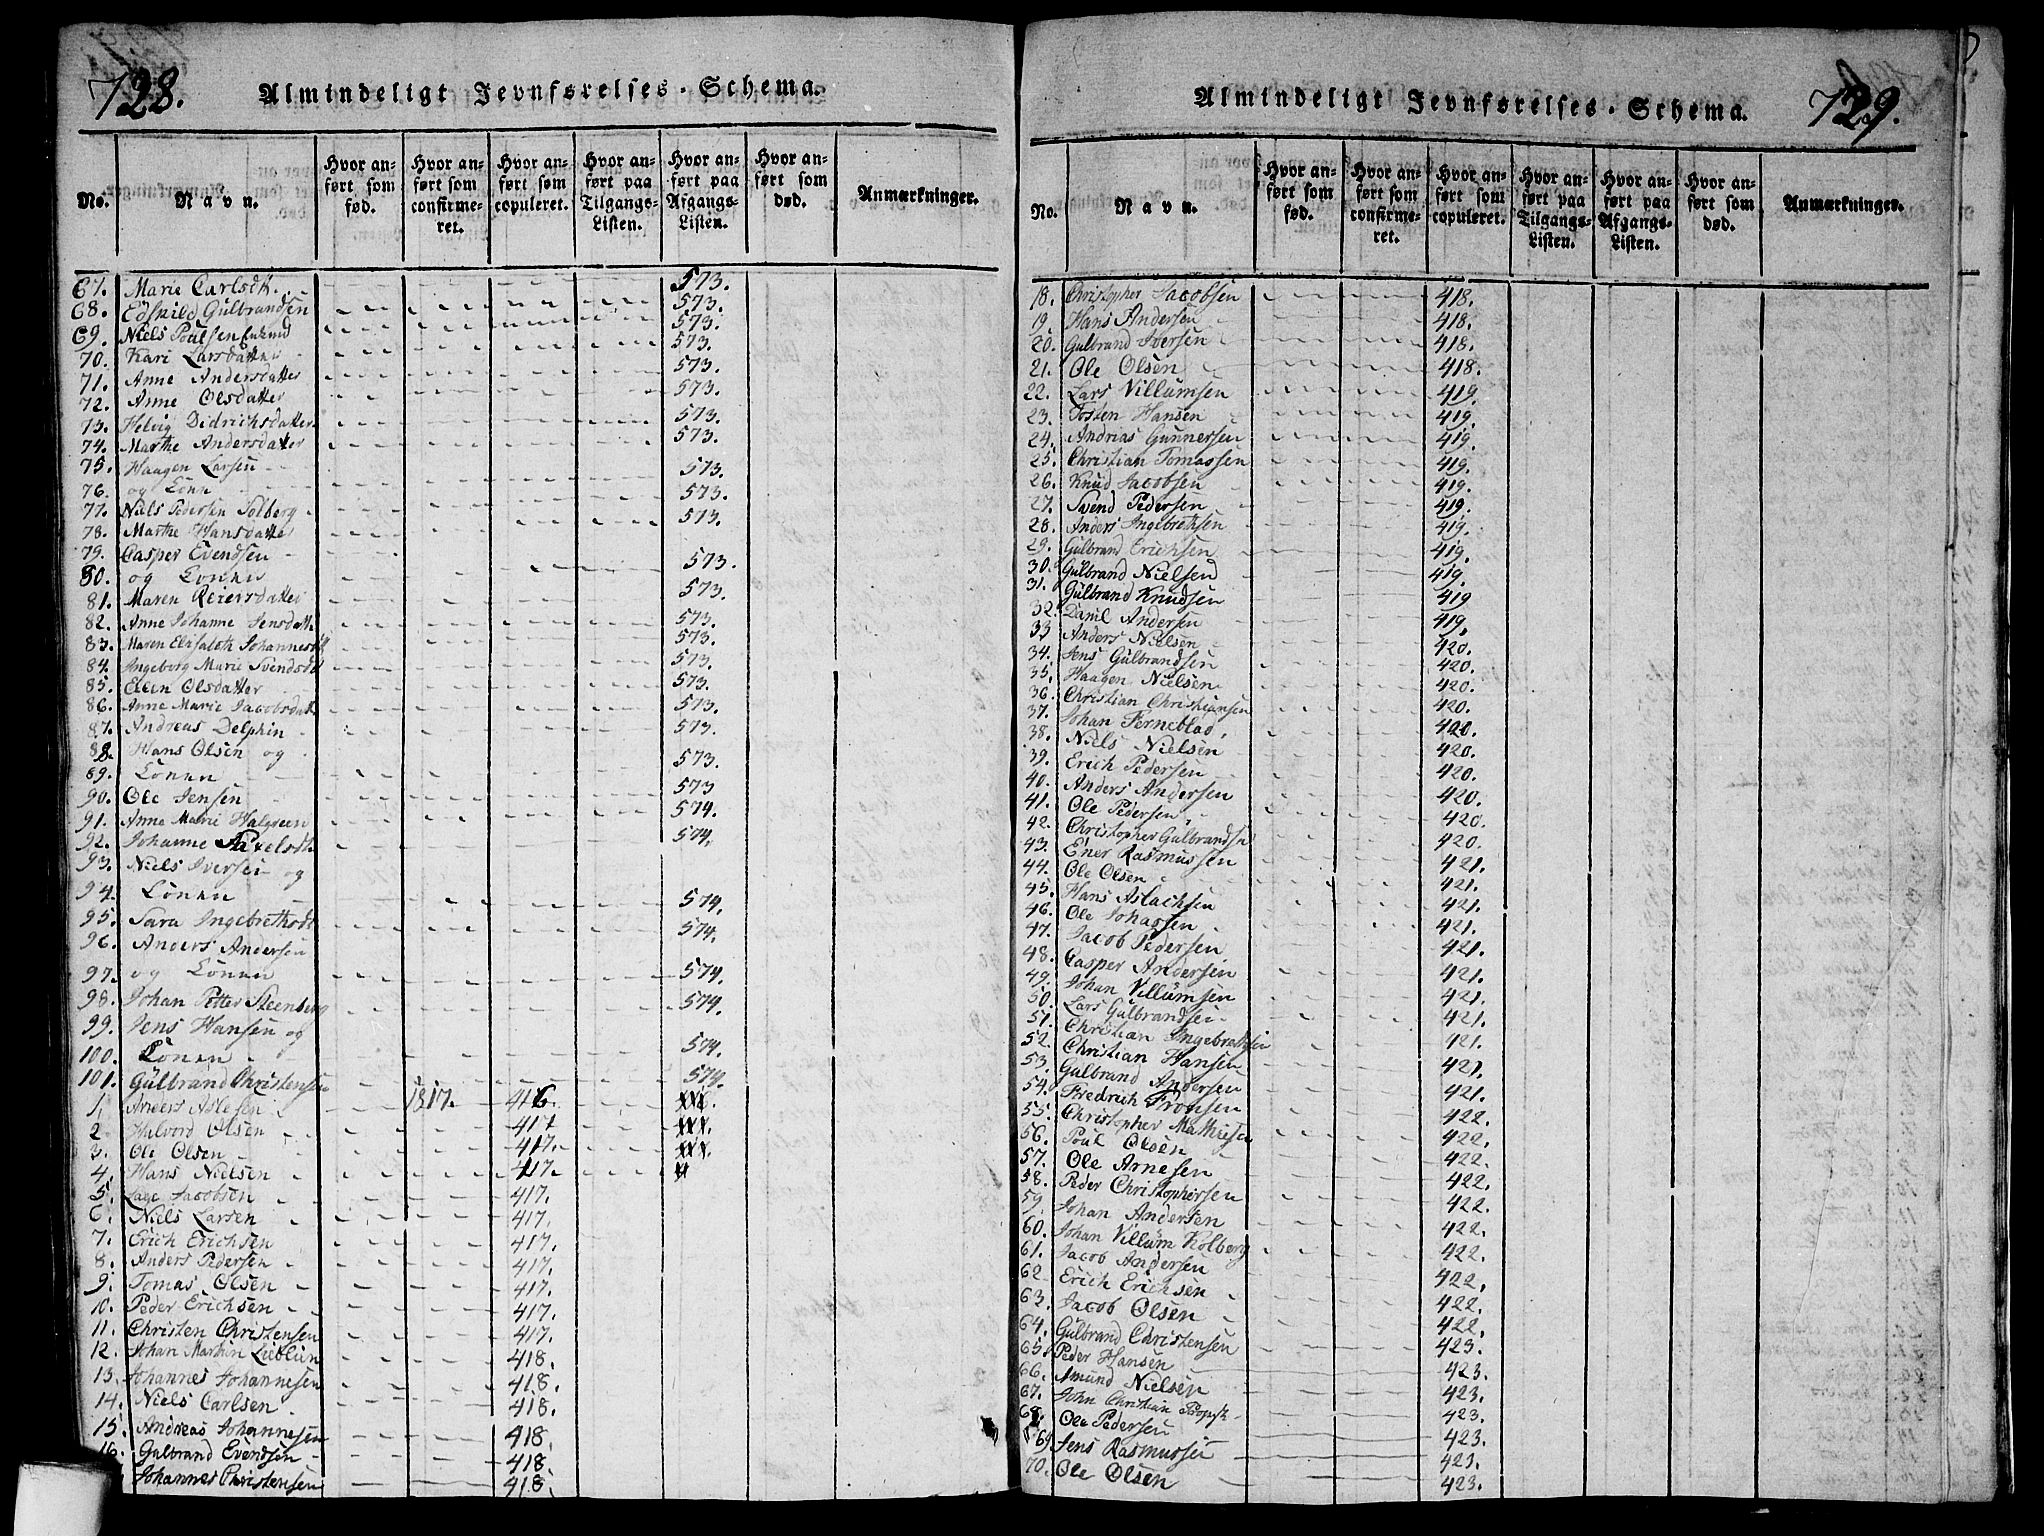 728.
Almindeligt Jevnførelses-Schema.
No.
Navn.
Hvor anført som fød.
Hvor anført som confirmeret.
Hvor anført som copuleret.
Hvor anført paa Tilgangs-Listen.
Hvor anført paa Afgangs-Listen.
Hvor anført som død.
Anmærkninger.
67. Marie Carlsdtr. 573.
68. Edskild Gulbrandsen 573.
69. Niels Poulsen 573.
70. Kari Larsdatter 573.
71. Anne Andersdatter 573.
72. Anne Olsdatter 573.
73. Helvig Didrichsdatter 573.
74. Marthe Andersdatter 573.
75. Haagen Larsen
76. og Konen 573.
77. Niels Pedersen Solberg 573.
78. Marthe Hansdatter 573.
79. Casper Evendsen
80. og Konen 573.
81. Maren Reiersdatter 573.
82. Anne Johanne Jensdatt 573.
83. Maren Elisabeth Johannesdtt 573.
84. Ingeborg Marie Svendsdt 573.
85. Elein Olsdatter 573.
86. Anne Marie Jacobsdatt 573.
87. Andreas Delphin 573.
88. Hans Olsen og
89. Konen 573.
90. Ole Jensen 573
91. Anne Marie Halgreen 574.
92. Johanne Paxelsdtr 574.
93. Niels Iversen og
94. Konen 574.
95. Sara Ingebrethsdt 574.
96. Anders Andersen
97. og Konen 574.
98. Johan Petter Steenberg 574.
99. Jens Hansen og
100. Konen 574.
101. Gulbrand Christensen 574.
1. Anders Aslesen 1817. 416.
2. Halvord Olsen 417
3. Ole Olsen 417.
4. Hans Nielsen 417.
5. Lage Jacobsen 417.
6. Niels Larsen 417.
7. Erich Erichsen 417.
8. Anders Pedersen 417.
9. Tomas Olsen 417.
10. Peder Erichsen 417.
11. Christen Christensen 417.
12. Johan Martin Lieblun 418.
13. Johannes Johannesen 418.
14. Niels Carlsen 418.
15. Andreas Johannesen 418.
16. Gulbrand Evendsen 418.
Johannes Christensen 418.
729.
Almindeligt Jevnførelses-Schema.
No.
Navn.
Hvor anført som fød.
Hvor anført som confirmeret.
Hvor anført som copuleret.
Hvor anført paa Tilgangs-Listen.
Hvor anført paa Afgangs-Listen.
Hvor anført som død.
Anmærkninger.
18. Christopher Jacobsen 418.
19. Hans Andersen 418.
20. Gulbrand Iversen 418.
21. Ole Olsen 418.
22. Lars Villumsen 419.
23. Tosten Hansen 419.
24. Andrias Gunnersen 419.
25. Christian Tomassen 419.
26. Knud Jacobsen 419.
27. Svend Pedersen 419.
28. Anders Ingebrethsen 419.
29. Gulbrand Erichsen 419.
30. Gulbrand Nielsen 419.
31. Gulbrand Knudsen 419
32. Danil Andersen 419.
33 Anders Nielsen 420.
34. Jens Gulbrandsen 420.
35. Haagen Nielsen 420.
36. Christian Christiansen 420.
37. Johan Ferneblad 420.
38. Niels Nielsen 420.
39. Erich Pedersen 420.
40. Anders Andersen 420.
41. Ole Pedersen 420.
42. Christopher Gulbrandsen 420.
43. Ener Rasmussen 421.
44. Ole Olsen 421.
45. Hans Aslachsen 421.
46. Ole Johassen 421.
47. Jacob Pedersen 421.
48. Casper Andersen 421.
49. Johan Villumsen 421.
50. Lars Gulbrandsen 421.
51. Christian Ingebrethsen 421.
52. Christian Hansen 421.
53. Gulbrand Andersen 421.
54. Fredrich Fronsen 422.
55. Christopher Mathiesen 422.
56. Poul Olsen 422.
57. Ole Arnesen 422.
58. Peder Christophersen 422.
59. Johan Andersen 422.
60. Johan Villum Kolberg 422.
61. Jacob Andersen 422.
62 Erich Erichsen 422.
63. Jacob Olsen 422.
64. Gulbrand Christensen 423.
65. Peder Hansen 423.
66. Amund Nielsen 423.
67. John Christian 423.
68. Ole Pedersen 423.
69 Jens Rasmussen 423.
70. Ole Olsen 423.